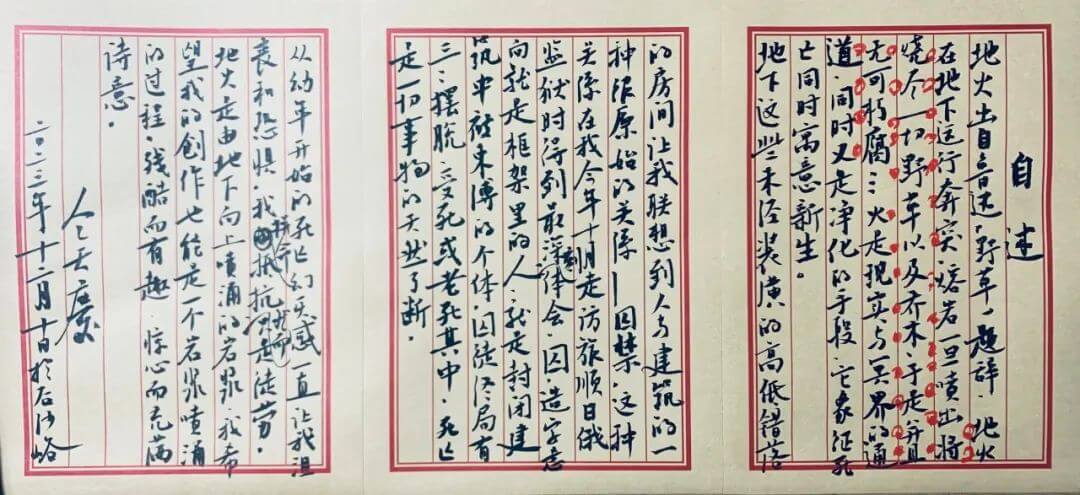 自述
地火出自鲁迅《野草》题辞.地火
在地下运行奔突.熔岩一旦喷出将
烧尽一切野草以及乔木.于是并且
无可朽腐……火是现实与冥界的通
道.同时又是净化的手段.它象征死
亡同时寓意新生。
地下这些未经装潢的高低错落
的房间让我联想到人与建筑的一
种很原始的关系—囚禁.这种
关系在我今年十月走访旅顺日俄
监狱时得到最深刻体会.囚造字意
向就是框架里的人.就是封闭建
筑中被束缚的个体.囚徒终局有
三:摆脱.受死或老死其中.死亡
是一切事物的天然了断.
从幼年开始的死亡幻灭感一直让我沮
丧和恐惧.我拼命抵抗 是徒劳.
地火是由地下向上喷涌的岩浆.我希
望我的创作也能是一个岩浆喷涌
的过程.残酷而有趣.惊心而充满
诗意.
二〇二三年十二月十日于石沙峪